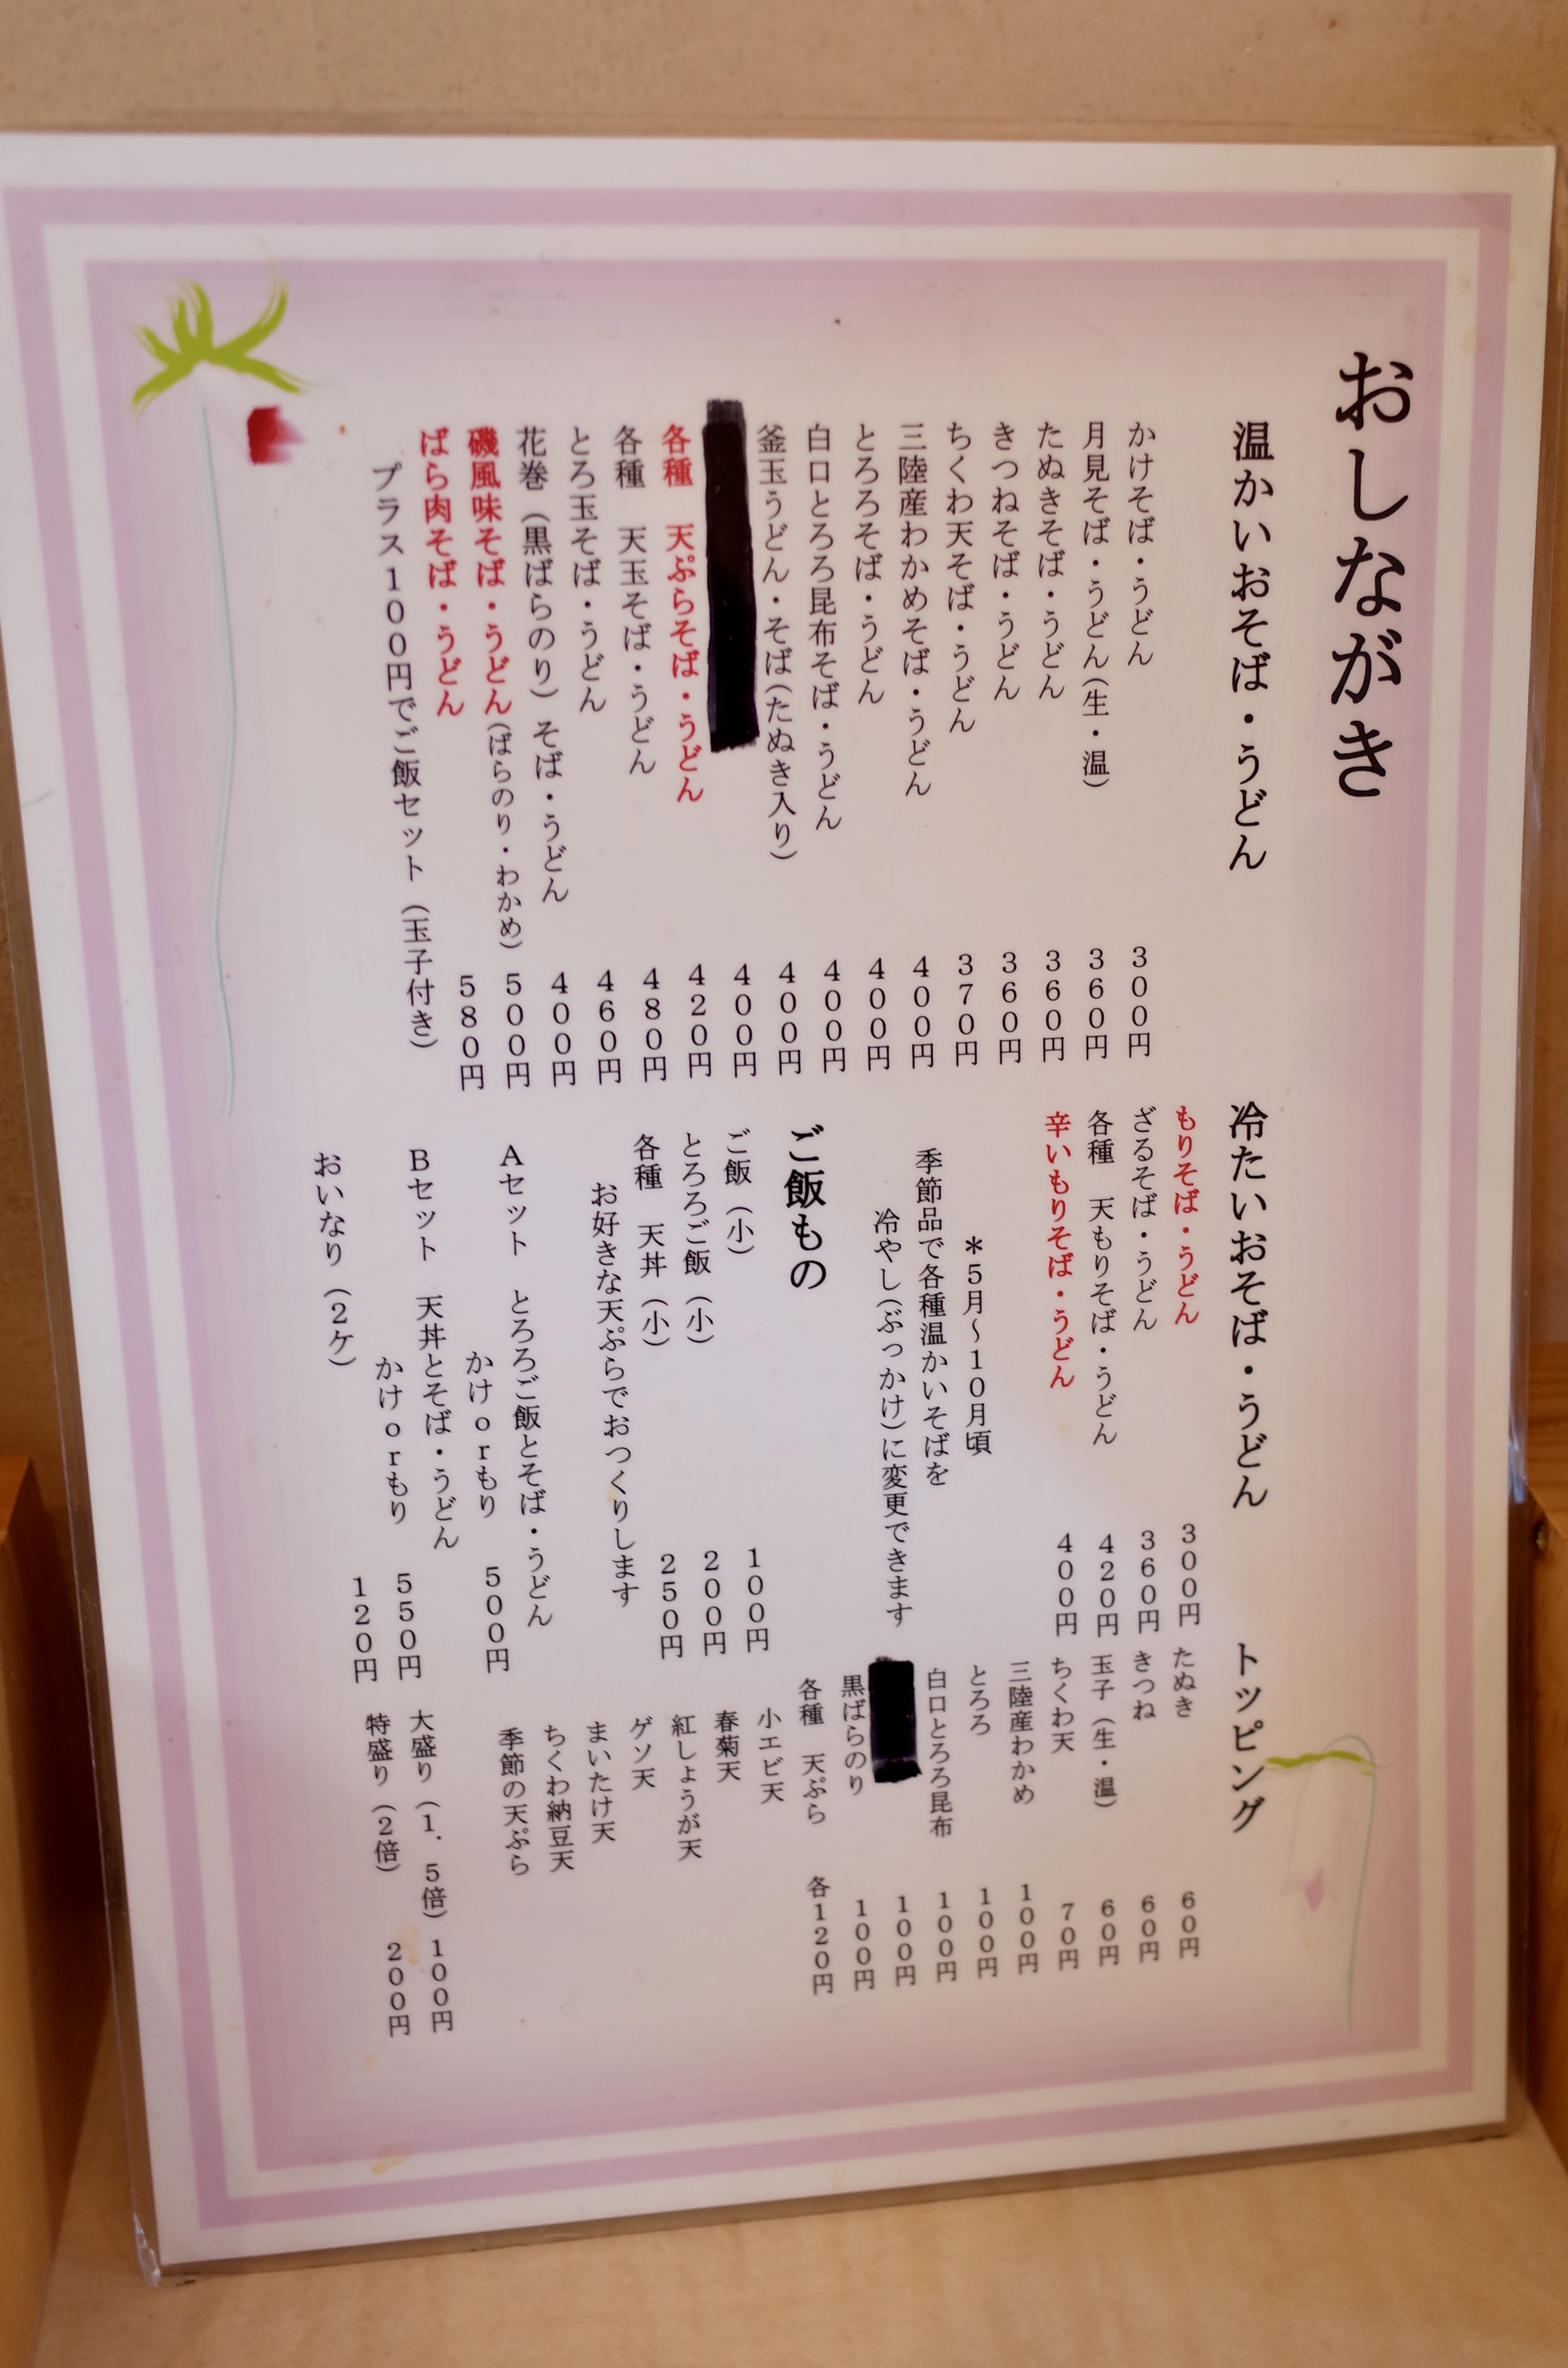 おしながき
温かいおそば・うどん
かけそば・うどん 300円
月見そば・うどん(生・温) 360円
たぬきそば・うどん 360円
きつねそば・うどん 360円
ちくわ天そば・うどん 370円
三陸産わかめそば・うどん 400円
とろろそば・うどん 400円
白口とろろ昆布そば・うどん 400円
釜玉うどん・そば(たぬき入り) 400円
400円
各種 天ぷらそば・うどん 420円
各種 天玉そば・うどん 480円
とろ玉そば・うどん 460円
花巻(黒ばらのり)そば・うどん 400円
磯風味そば・うどん(ばらのり・わかめ) 500円
ばら肉そば・うどん 580円
プラス100円でご飯セット(玉子付き)
冷たいおそば・うどん
もりそば・うどん 300円
ざるそば・うどん 360円
各種 天もりそば・うどん 420円
辛いもりそば・うどん 400円
＊5月〜10月頃
季節品で各種温かいそばを
冷やし(ぶっかけ)に変更できます
ご飯もの
ご飯(小) 100円
とろろご飯(小) 200円
各種 天丼(小) 250円
お好きな天ぷらでおつくりします
Aセット とろろご飯とそば・うどん
かけorもり 500円
Bセット 天丼とそば・うどん
かけorもり 550円
おいなり(2ケ) 120円
トッピング
たぬき 60円
きつね 60円
玉子(生・温) 60円
ちくわ天 70円
三陸産わかめ 100円
とろろ 100円
白口とろろ昆布 100円
100円
黒ばらのり 100円
各種 天ぷら 各120円
小エビ天
春菊天
紅しょうが天
ゲソ天
まいたけ天
ちくわ納豆天
季節の天ぷら
大盛り(1.5倍) 100円
特盛り(2倍) 200円